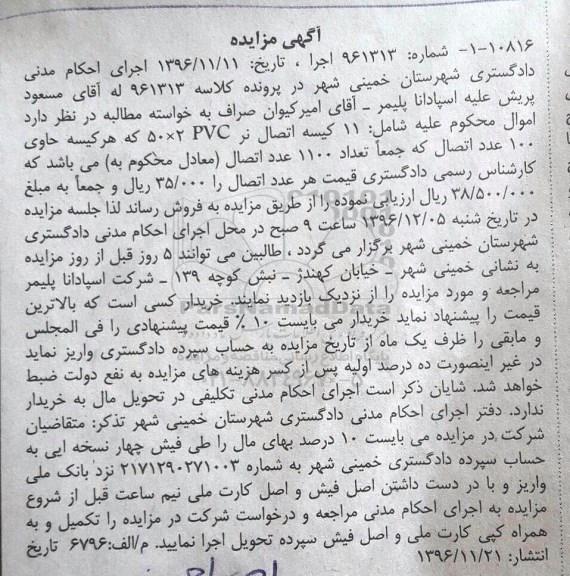 آگهی مزایده
۱-۱۰۸۱۶- شماره: ۹۶۱۳۱۳ اجرا ، تاریخ: ۱۳۹۶/۱۱/۱۱ اجرای احکام مدنی
دادگستری شهرستان خمینی شهر در پرونده کلاسه ۹۶۱۳۱۳ له آقای مسعود
پریش علیه اسپادانا پلیمر ـ آقای امیرکیوان صراف به خواسته مطالبه در نظر دارد
اموال محکوم علیه شامل: ۱۱ کیسه اتصال نر PVC ۵۰×۲ که هرکیسه حاوی
۱۰۰ عدد اتصال که جمعاً تعداد ۱۱۰۰ عدد اتصال (معادل محکوم به) می باشد که
کارشناس رسمی دادگستری قیمت هر عدد اتصال را ۳۵/۰۰۰ ریال و جمعاً به مبلغ
۳۸/۵۰۰/۰۰۰ ریال ارزیابی نموده را از طریق مزایده به فروش رساند لذا جلسه مزایده
در تاریخ شنبه ۱۳۹۶/۱۲/۰۵ ساعت ۹ صبح در محل اجرای احکام مدنی دادگستری
شهرستان خمینی شهر برگزار می گردد ، طالبین می توانند ۵ روز قبل از روز مزایده
به نشانی خمینی شهر ـ خیابان کهندژ ـ نبش کوچه ۱۳۹ ـ شرکت اسپادانا پلیمر
مراجعه و مورد مزایده را از نزدیک بازدید نمایند. خریدار کسی است که بالاترین
قیمت را پیشنهاد نماید خریدار می بایست ۱۰ ٪ قیمت پیشنهادی را فی المجلس
و مابقی را ظرف یک ماه از تاریخ مزایده به حساب سپرده دادگستری واریز نماید
در غیر اینصورت ده درصد اولیه پس از کسر هزینه های مزایده به نفع دولت ضبط
خواهد شد. شایان ذکر است اجرای احکام مدنی تکلیفی در تحویل مال به خریدار
ندارد. دفتر اجرای احکام مدنی دادگستری شهرستان خمینی شهر تذکر: متقاضیان
شرکت در مزایده می بایست ۱۰ درصد بهای مال را طی فیش چهار نسخه ایی به
حساب سپرده دادگستری خمینی شهر به شماره ۲۱۷۱۲۹۰۲۷۱۰۰۳ نزد بانک ملی
واریز و با در دست داشتن اصل فیش و اصل کارت ملی نیم ساعت قبل از شروع
مزایده به اجرای احکام مدنی مراجعه و درخواست شرکت در مزایده را تکمیل و به
همراه کپی کارت ملی و اصل فیش سپرده تحویل اجرا نمایید. م/الف:۶۷۹۶ تاریخ
انتشار: ۱۳۹۶/۱۱/۲۱